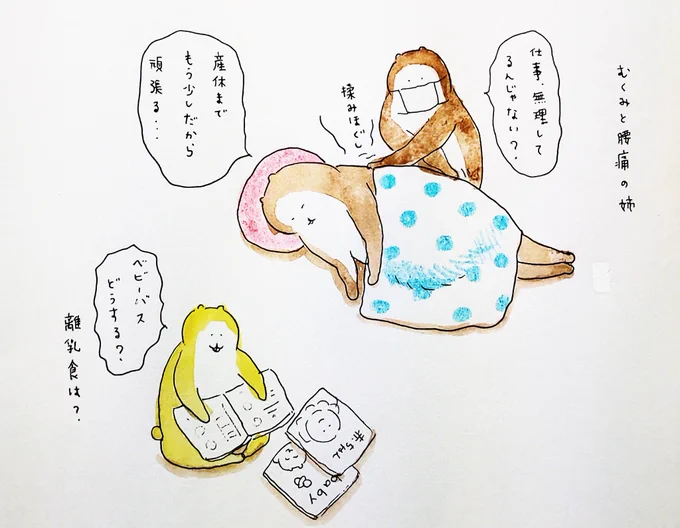 むくみと腰痛の姉
仕事、無理して
るんじゃない?
揉みほぐし
産休まで
もう少しだから
頑張る...
ベビーバス
どうする?
離乳食は?
赤ちゃん
baby